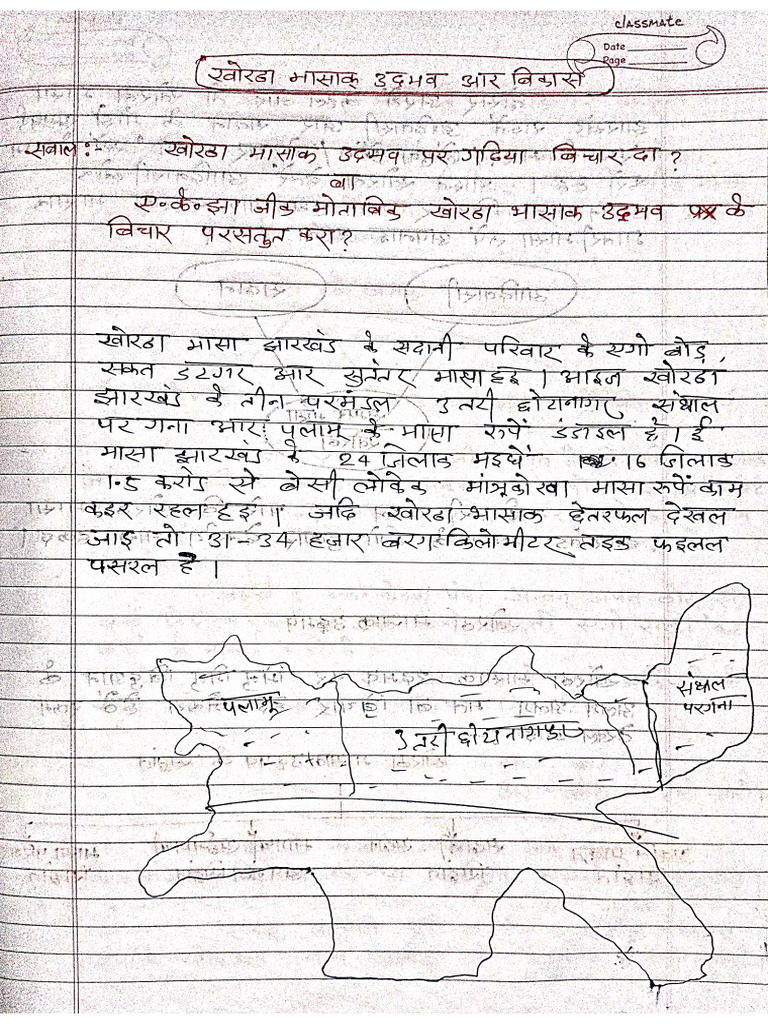 classmate
Date
Page
खोरठा भासाक उदभव आर बिकास
सवाल :- खोरठा भासाक उदभव पर गढ़िया बिचार दा ?
बा
ए. के. झा जीक मोताबिक खोरठा भासाक उदभव के
बिचार परसतुत करा ?
खोरठा भासा झारखंड के सदानी परिवार के एगो बोड़,
सकत डंटगर आर सुतंतर भासा हइ । आइज खोरठा
झारखंड के तीन परमंडल उतरी छोटानागपुर संथाल
परगना आर पलामू के भासा रूपें डंडाइल है । ई
भासा झारखंड के 24 जिलाक मइधें 16 जिलाक
1.5 करोड़ से बेसी लोकेक मात्रृकोखा भासा रूपें काम
कइर रहल हइ । जदि खोरठा भासाक छेतरफल देखल
जाइ तो 31-34 हजार बरग किलोमीटर तइक फइलल
पसरल है ।
पलामू
उतरी छोटानागपुर
संथाल
परगना